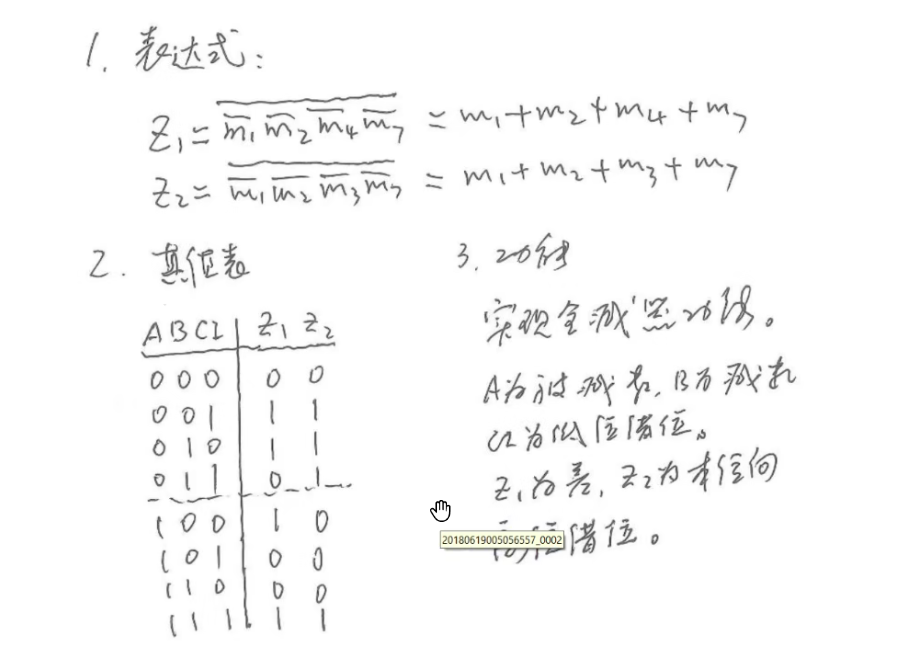 1. 表达式:
Z₁ = \overline{\overline{m₁} \overline{m₂} \overline{m₄} \overline{m₇}} = m₁+m₂+m₄+m₇
Z₂ = \overline{\overline{m₁} \overline{m₂} \overline{m₃} \overline{m₇}} = m₁+m₂+m₃+m₇
2. 真值表
A B CI | Z₁ Z₂
0 0 0 | 0 0
0 0 1 | 1 1
0 1 0 | 1 1
0 1 1 | 0 1
1 0 0 | 1 0
1 0 1 | 0 0
1 1 0 | 0 0
1 1 1 | 1 1
3. 功能
实现全减器功能。
A为被减数,B为减数
CI为低位借位。
Z₁为差,Z₂为本位向
高位借位。
20180619005056557_0002